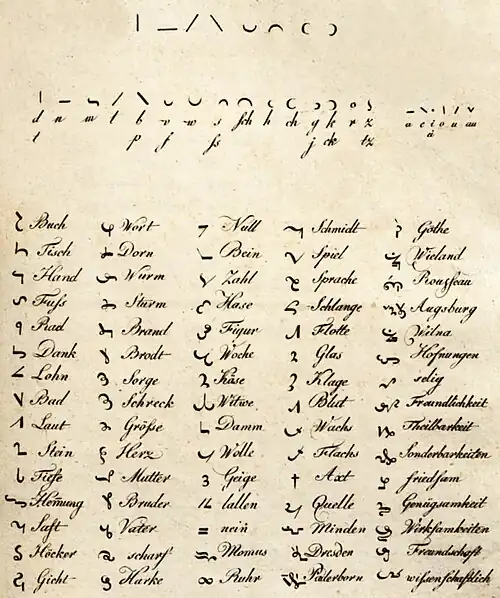 d n m l b v w s sch h ch g k r z a e i o u au
t p f ss j ck tz ä
Buch Wort Null Schmidt Göthe
Tisch Dorn Bein Spiel Wieland
Hand Wurm Zahl Sprache Rousseau
Fuss Sturm Hase Schlange Augsburg
Rad Brand Figur Flotte Wilna
Dank Brodt Woche Glas Hofnungen
Lohn Sorge Käse Klage selig
Bad Schreck Witwe Blut Freundlichkeit
Laut Größe Damm Wachs Theilbarkeit
Stein Herz Wolle Flachs Sonderbarkeiten
Tiefe Mutter Geige Axt friedsam
Hofnung Bruder lallen Quelle Genügsamkeit
Saft Vater nein Minden Wirksamkeiten
Höcker scharf Momus Dresden Freundschaft
Gicht Harke Ruhr Paderborn wissenschaftlich